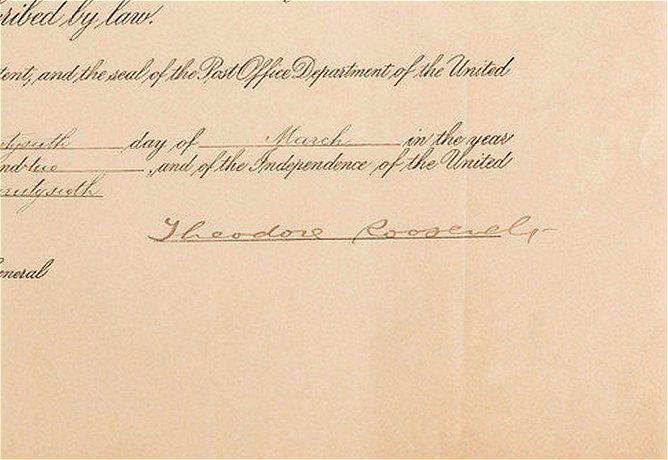 cribed by law.
tent, and the seal of the Post Office Department of the United
tysixth day of March in the year
nd two, and of the Independence of the United
entysixth
Theodore Roosevelt
eneral